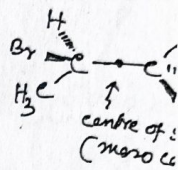 H
Br C C
H3C
centre of
(meso